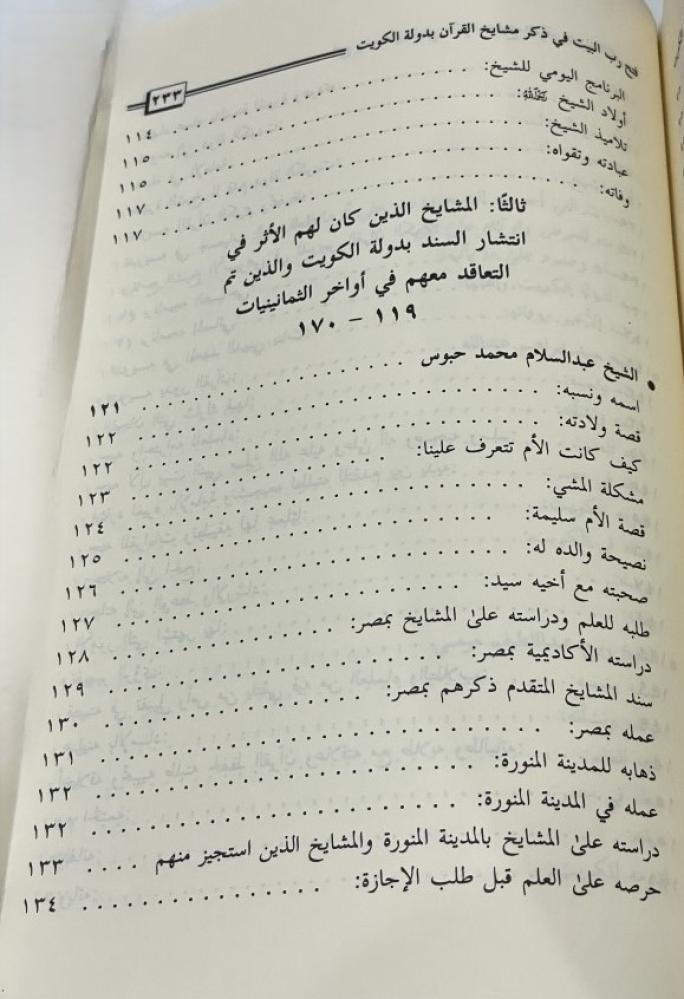 فتح رب البيت في ذكر مشايخ القرآن بدولة الكويت
٢٣٣
البرنامج اليومي للشيخ: . . . . . . . . . . ١١٤
أولاد الشيخ رحمه الله: . . . . . . . . . . ١١٥
تلاميذ الشيخ: . . . . . . . . . . ١١٥
عبادته وتقواه: . . . . . . . . . . ١١٧
وفاته: . . . . . . . . . . ١١٧
ثالثًا: المشايخ الذين كان لهم الأثر في
انتشار السند بدولة الكويت والذين تم
التعاقد معهم في أواخر الثمانينيات
١١٩ - ١٧٠
• الشيخ عبدالسلام محمد حبوس . . . . . . . . . . ١٢١
اسمه ونسبه: . . . . . . . . . . ١٢٢
قصة ولادته: . . . . . . . . . . ١٢٢
كيف كانت الأم تتعرف علينا: . . . . . . . . . . ١٢٣
مشكلة المشي: . . . . . . . . . . ١٢٤
قصة الأم سليمة: . . . . . . . . . . ١٢٥
نصيحة والده له: . . . . . . . . . . ١٢٦
صحبته مع أخيه سيد: . . . . . . . . . . ١٢٧
طلبه للعلم ودراسته علىٰ المشايخ بمصر: . . . . . . . . . . ١٢٨
دراسته الأكاديمية بمصر: . . . . . . . . . . ١٢٩
سند المشايخ المتقدم ذكرهم بمصر: . . . . . . . . . . ١٣٠
عمله بمصر: . . . . . . . . . . ١٣١
ذهابه للمدينة المنورة: . . . . . . . . . . ١٣٢
عمله في المدينة المنورة: . . . . . . . . . . ١٣٢
دراسته علىٰ المشايخ بالمدينة المنورة والمشايخ الذين استجيز منهم . . . . ١٣٣
حرصه علىٰ العلم قبل طلب الإجازة: . . . . . . . . . . ١٣٤